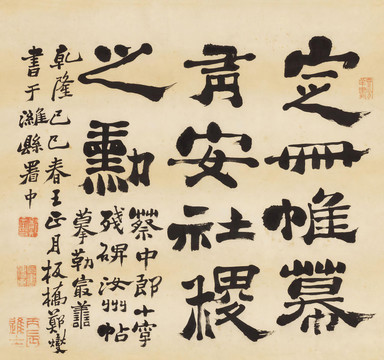 定冊帷幕
有安社稷
之勳
蔡中郎小字
殘碑汝州帖
摹勒最
乾隆己巳春王正月板橋鄭燮
書于濰縣署中